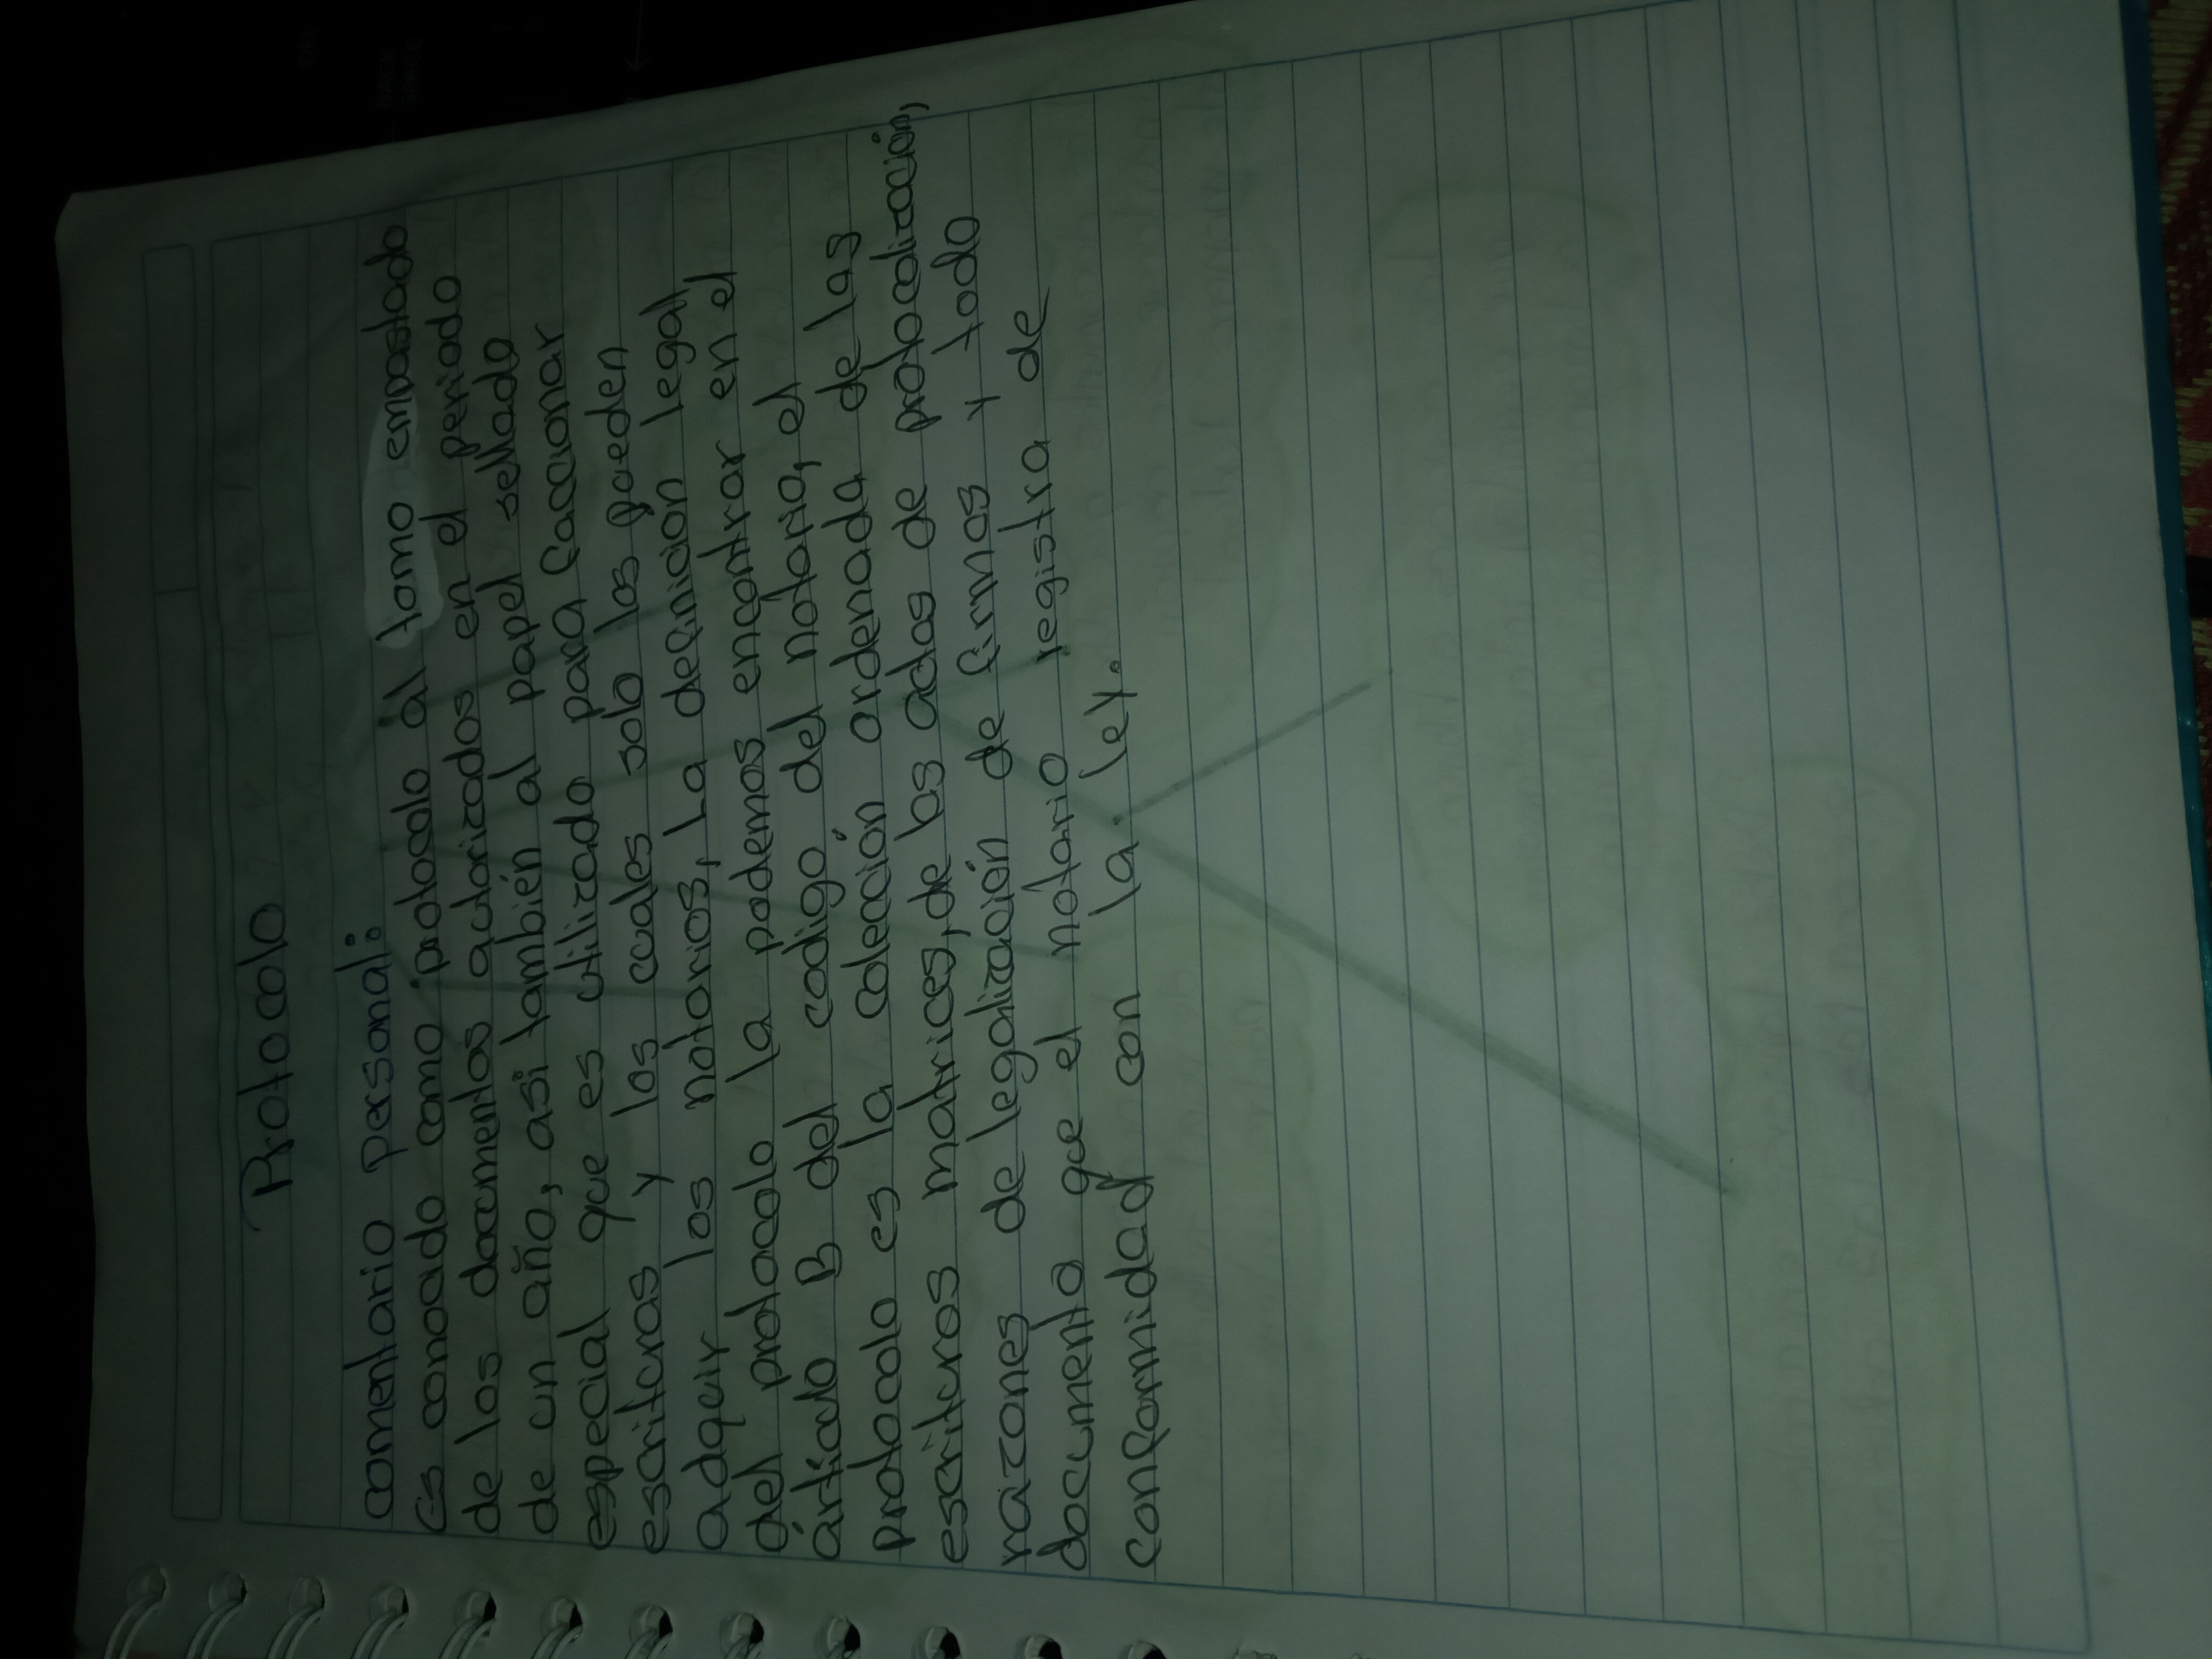 Protocolo
comentario personal:
Es conocido como protocolo al tomo empastado
de los documentos autorizados en el periodo
de un año, asi también al papel sellado
especial que es utilizado para faccionar
escrituras y los cuales solo los pueden
adquirir los notarios, La definición legal
del protocolo la podemos encontrar en el
árticulo 8 del codigo del notario, el
protocolo es la colección ordenada de las
escrituras matrices, de las actas de protocolización,
razones de legalización de firmas y todo
documento que el notario registra de
conformidad con la ley.